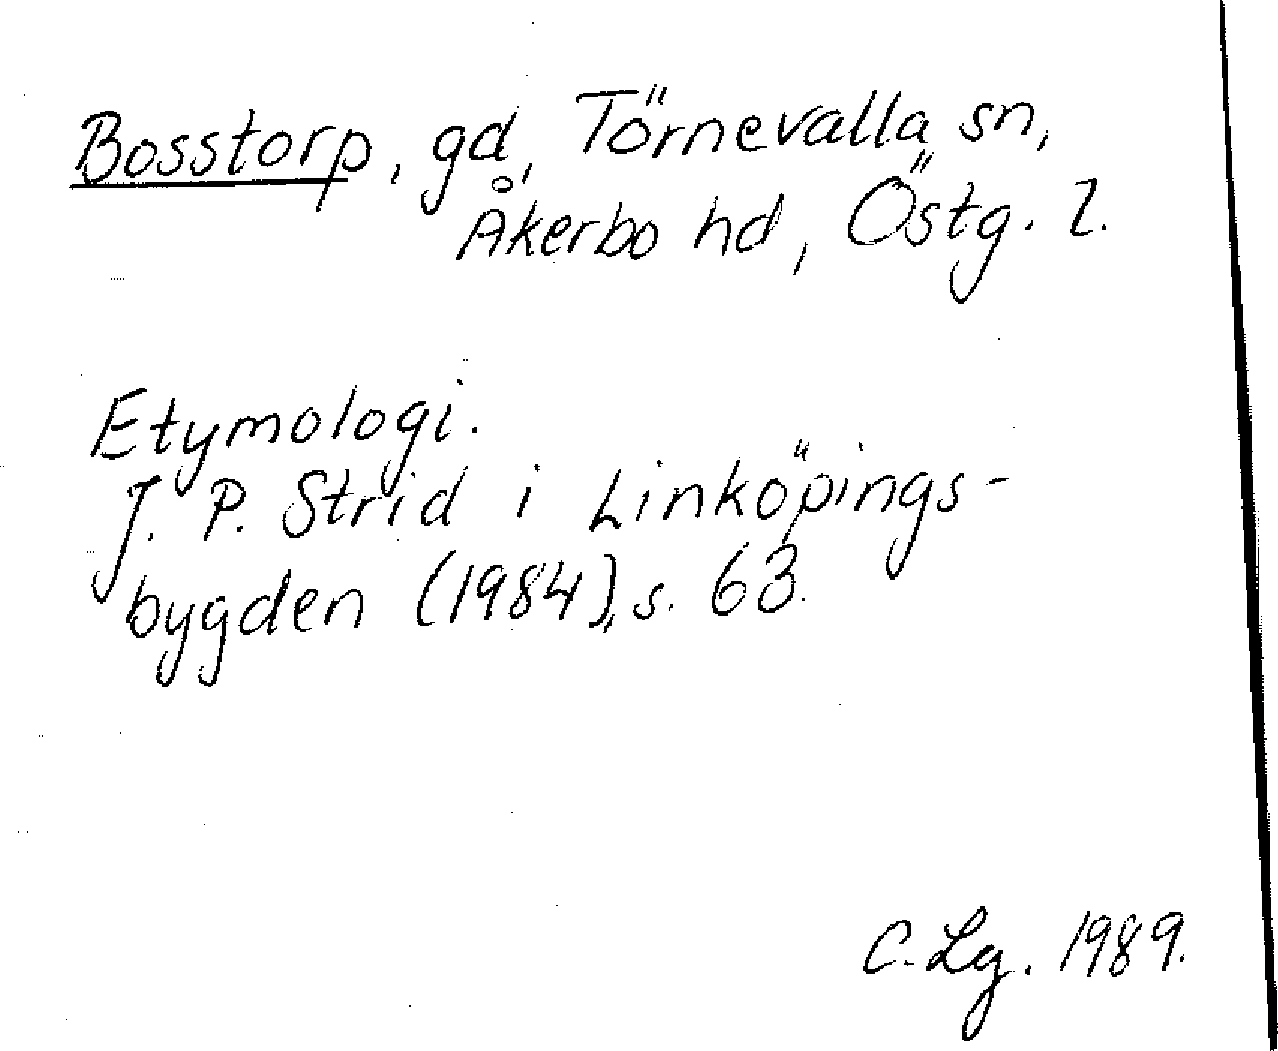 Bosstorp, gd, Törnevalla sn,
Åkerbo hd, Östg. l.
Etymologi.
J. P. Strid i Linköpings-
bygden (1984), s. 63.
C. Lg. 1989.